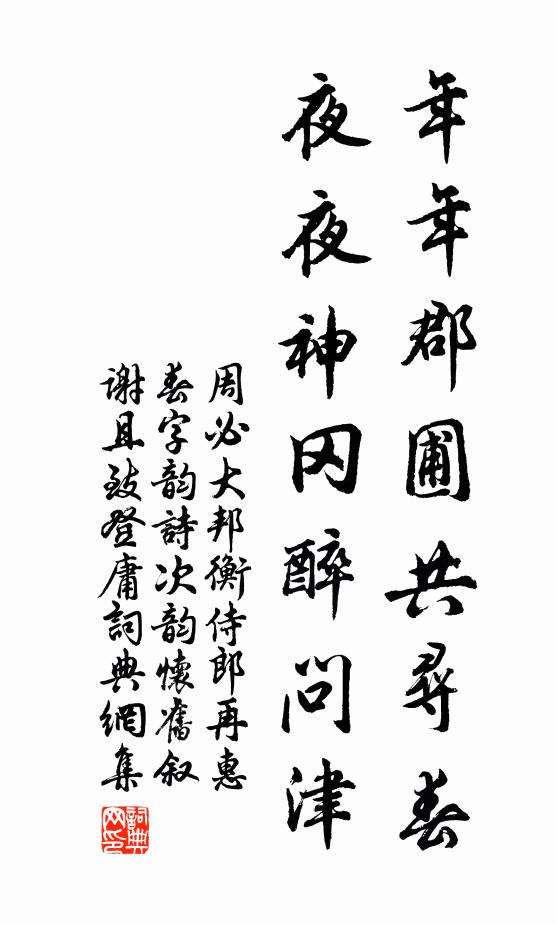 年年郡圃共尋春
夜夜神冈醉問津
周必大邦衡侍郎再惠
春字韵詩次韵懷舊叙
謝且致登庸詞典網集
詞典
网印